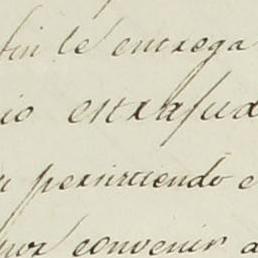 fin le entrega
io estrajud
persistiendo
por convenir a